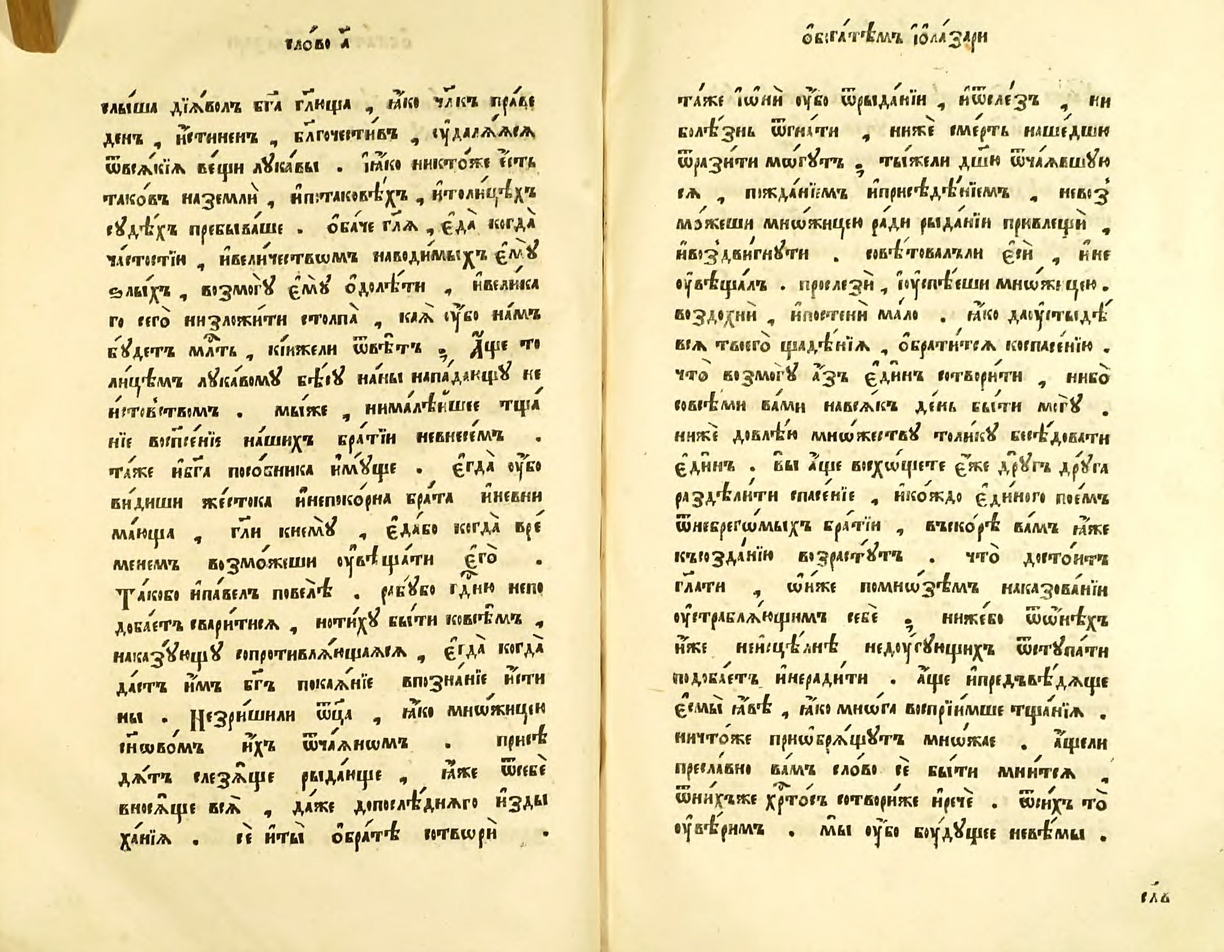 сло́во а҃
слы́ша дїѧ́волъ бг҃а гл҃юща , ꙗ҆́ко чл҃къ пра́ве
денъ , и҆́стиненъ , бл҃гочести́въ , оу҆далѧ́ѧсѧ
ѿвсѧ́кїѧ ве́щи лꙋка́вы . і҆ꙗ҆́ко никто́же є҆́сть
тако́въ наземлѝ , и҆птако́вѣхъ , и҆толи́цѣхъ
сꙋдѣ́хъ пребыва́ше . ѻ҆ба́че гл҃ѧ , є҆да̀ когда̀
ча́стостїи , и҆вели́чествѡмъ наводи́мыхъ є҆мꙋ̀
ѕлы́хъ , возмогꙋ̀ є҆мꙋ̀ ѻ҆долѣ́ти , и҆вели́ка
го сего̀ низложи́ти столпа̀ , ка́ѧ оу҆́бо на́мъ
бꙋ́детъ мл҃ть , кі́ижели ѿвѣ́тъ ; А҆́ще то
ли́цѣмъ лꙋка́вомꙋ бѣ́сꙋ на́ны напа́дающꙋ не
и́стовством . мы́же , нима́лѣйшее тща́
нїе воспс҃е́нїе на́шихъ бра́тїи невнесе́мъ .
та́же и҆бг҃а посо́бника и҆мꙋ́ще . є҆гда̀ оу҆́бо
ви́диши же́стока и҆непоко́рна бра́та и҆невни
ма́юща , гл҃и кнемꙋ̀ , є҆да́бо когда̀ вре́
менемъ возмо́жеши оу҆вѣща́ти є҆го̀ .
Та́кобо и҆па́велъ повелѣ̀ . рабꙋ́бо гдⷭ҇ню непо
доба́етъ свари́тисѧ , ноти́хꙋ бы́ти ковсѣ́мъ ,
наказꙋ́ющꙋ сопротивлѧ́ющаѧсѧ , є҆гда̀ когда̀
да́стъ и҆̀мъ бг҃ъ покаѧ́нїе впозна́нїе и҆́сти
ны . Незри́шили ѿц҃а̀ , ꙗ҆́ко мнѡ́жицею
сн҃ѡво́мъ и҆́хъ ѿча́ѧнѡмъ . присѣ
дѧ́тъ слезѧ́ще рыда́юще , ꙗ҆́же ѿсебѐ
вносѧ́ще всѧ̀ , да́же допослѣ́днѧго и҆зды
ха́нїѧ . сѐ и҆ты̀ ѻ҆бра́тѣ сотворѝ .
ѻ҆бога́тѣмъ і҆ѻла́зари
та́же і҆ѡ́нѝ оу҆́бо ѿрыда́нїи , и҆ѿсле́зъ , ни
болѣ́знь ѿгна́ти , нижѐ сме́рть наше́дшю
ѿрази́ти мѡ́гꙋтъ ; ты́жели дш҃ю ѿча́ѧвшꙋю
сѧ , пождані́емъ и҆присѣдѣ́нїемъ , невоз̾
мо́жеши мнѡ́жицею ради рыда́нїи привлещѝ ,
и҆воздви́гнꙋти . совѣ́товалъли є҆сѝ , и҆не
оу҆вѣща́лъ . просле́зи , і҆оу҆спѣ́еши мнѡ́жицею .
воздохнѝ , и҆постенѝ ма́ло . ꙗ҆́ко даоу҆стыдѣ́
всѧ твоего̀ щадѣ́нїѧ , ѻ҆брати́тсѧ коспасе́нїю .
что̀ возмогꙋ̀ а҆́зъ є҆ди́нъ сотвори́ти , нибо̀
совсѣ́ми ва́ми навсѧ́къ де́нь бы́ти могꙋ̀ .
нижѐ довлѣ́ю мнѡ́жествꙋ толи́кꙋ бесѣ́довати
є҆ди́нъ . вы̀ а҆́ще восхѡ́щете є҆́же дрꙋ́гъ дрꙋ́га
раздѣли́ти спасе́нїе , и҆ко́ждо є҆ди́ного пое́мъ
ѿнебрего́мыхъ бра́тїи , въско́рѣ ва́мъ ꙗ҆́же
късозда́нїю возрасту́тъ . что̀ досто́итъ
гл҃ати , ѡ҆и҆́же помно́зѣмъ наказова́нїи
оу҆страблѧ́ющимъ себѐ ; нижѐбо ѿѻ҆́нѣхъ
и҆́же неисцѣ́лнѣ недоу́гꙋющихъ ѿстꙋпа́ти
подоба́етъ и҆неради́ти . а҆́ще и҆предъвѣ́дѧще
є҆смы̀ ꙗ҆́вѣ , ꙗ҆́ко мнѡ́га воспрїи́мше тща́нїѧ .
ничто́же приѡбрѧ́щꙋтъ мнѡ́жае . а҆́щели
пресла́вно ва́мъ сло́во сѐ бы́ти мни́тсѧ ,
ѿни́хъже хрⷭ҇то́съ сотвори́же и҆речѐ . ѿси́хъ то̀
оу҆вѣ́римъ . мы̀ оу҆́бо боудꙋ́щее невѣ́мы .
сла́в